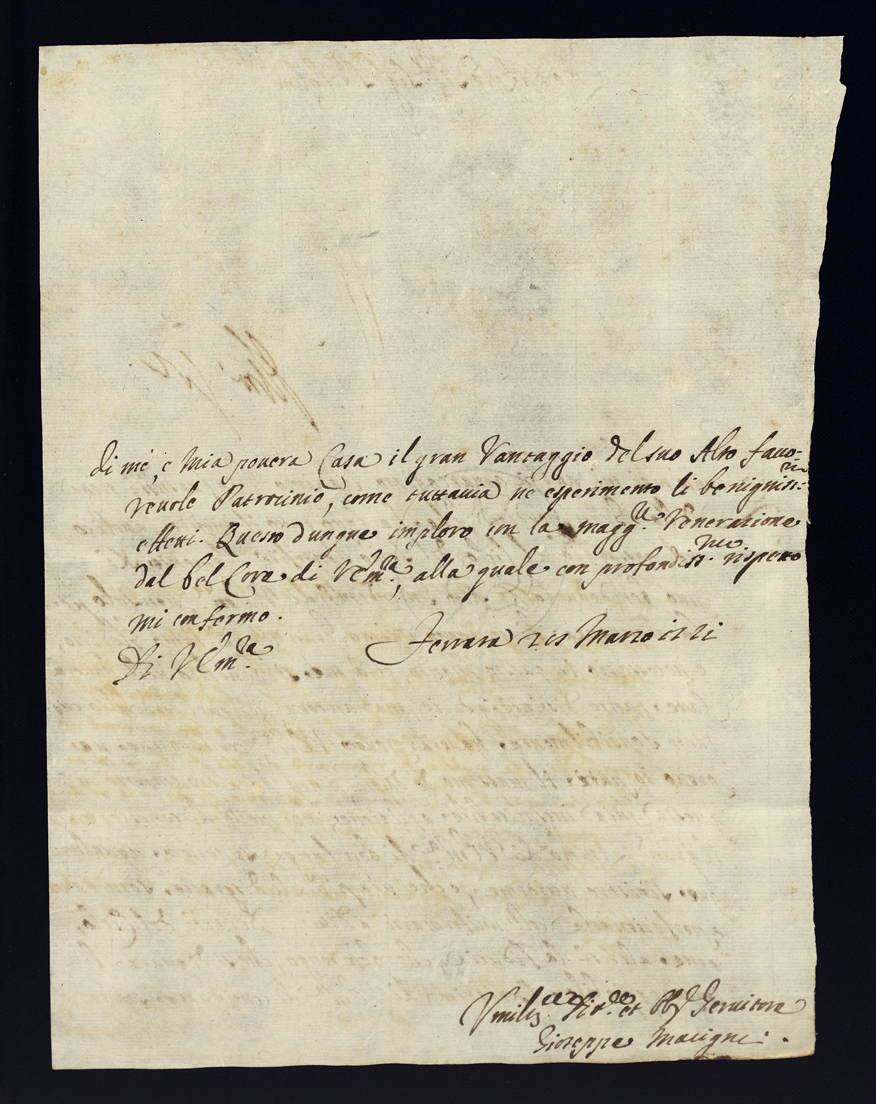 di mè, e mia povera Casa il gran Vantaggio del suo Alto favo-
revole Patrocinio, come tuttavia ne esperimento li benigniss:mi
effetti. Questo dunque imploro con la magg:re Venerazione
dal bel Core di V.Em:za, alla quale con profondiss:mo rispetto
mi confermo.
Di V.Em:za Ferrara Marzo
Umiliss: et Servitore
Gioseppe